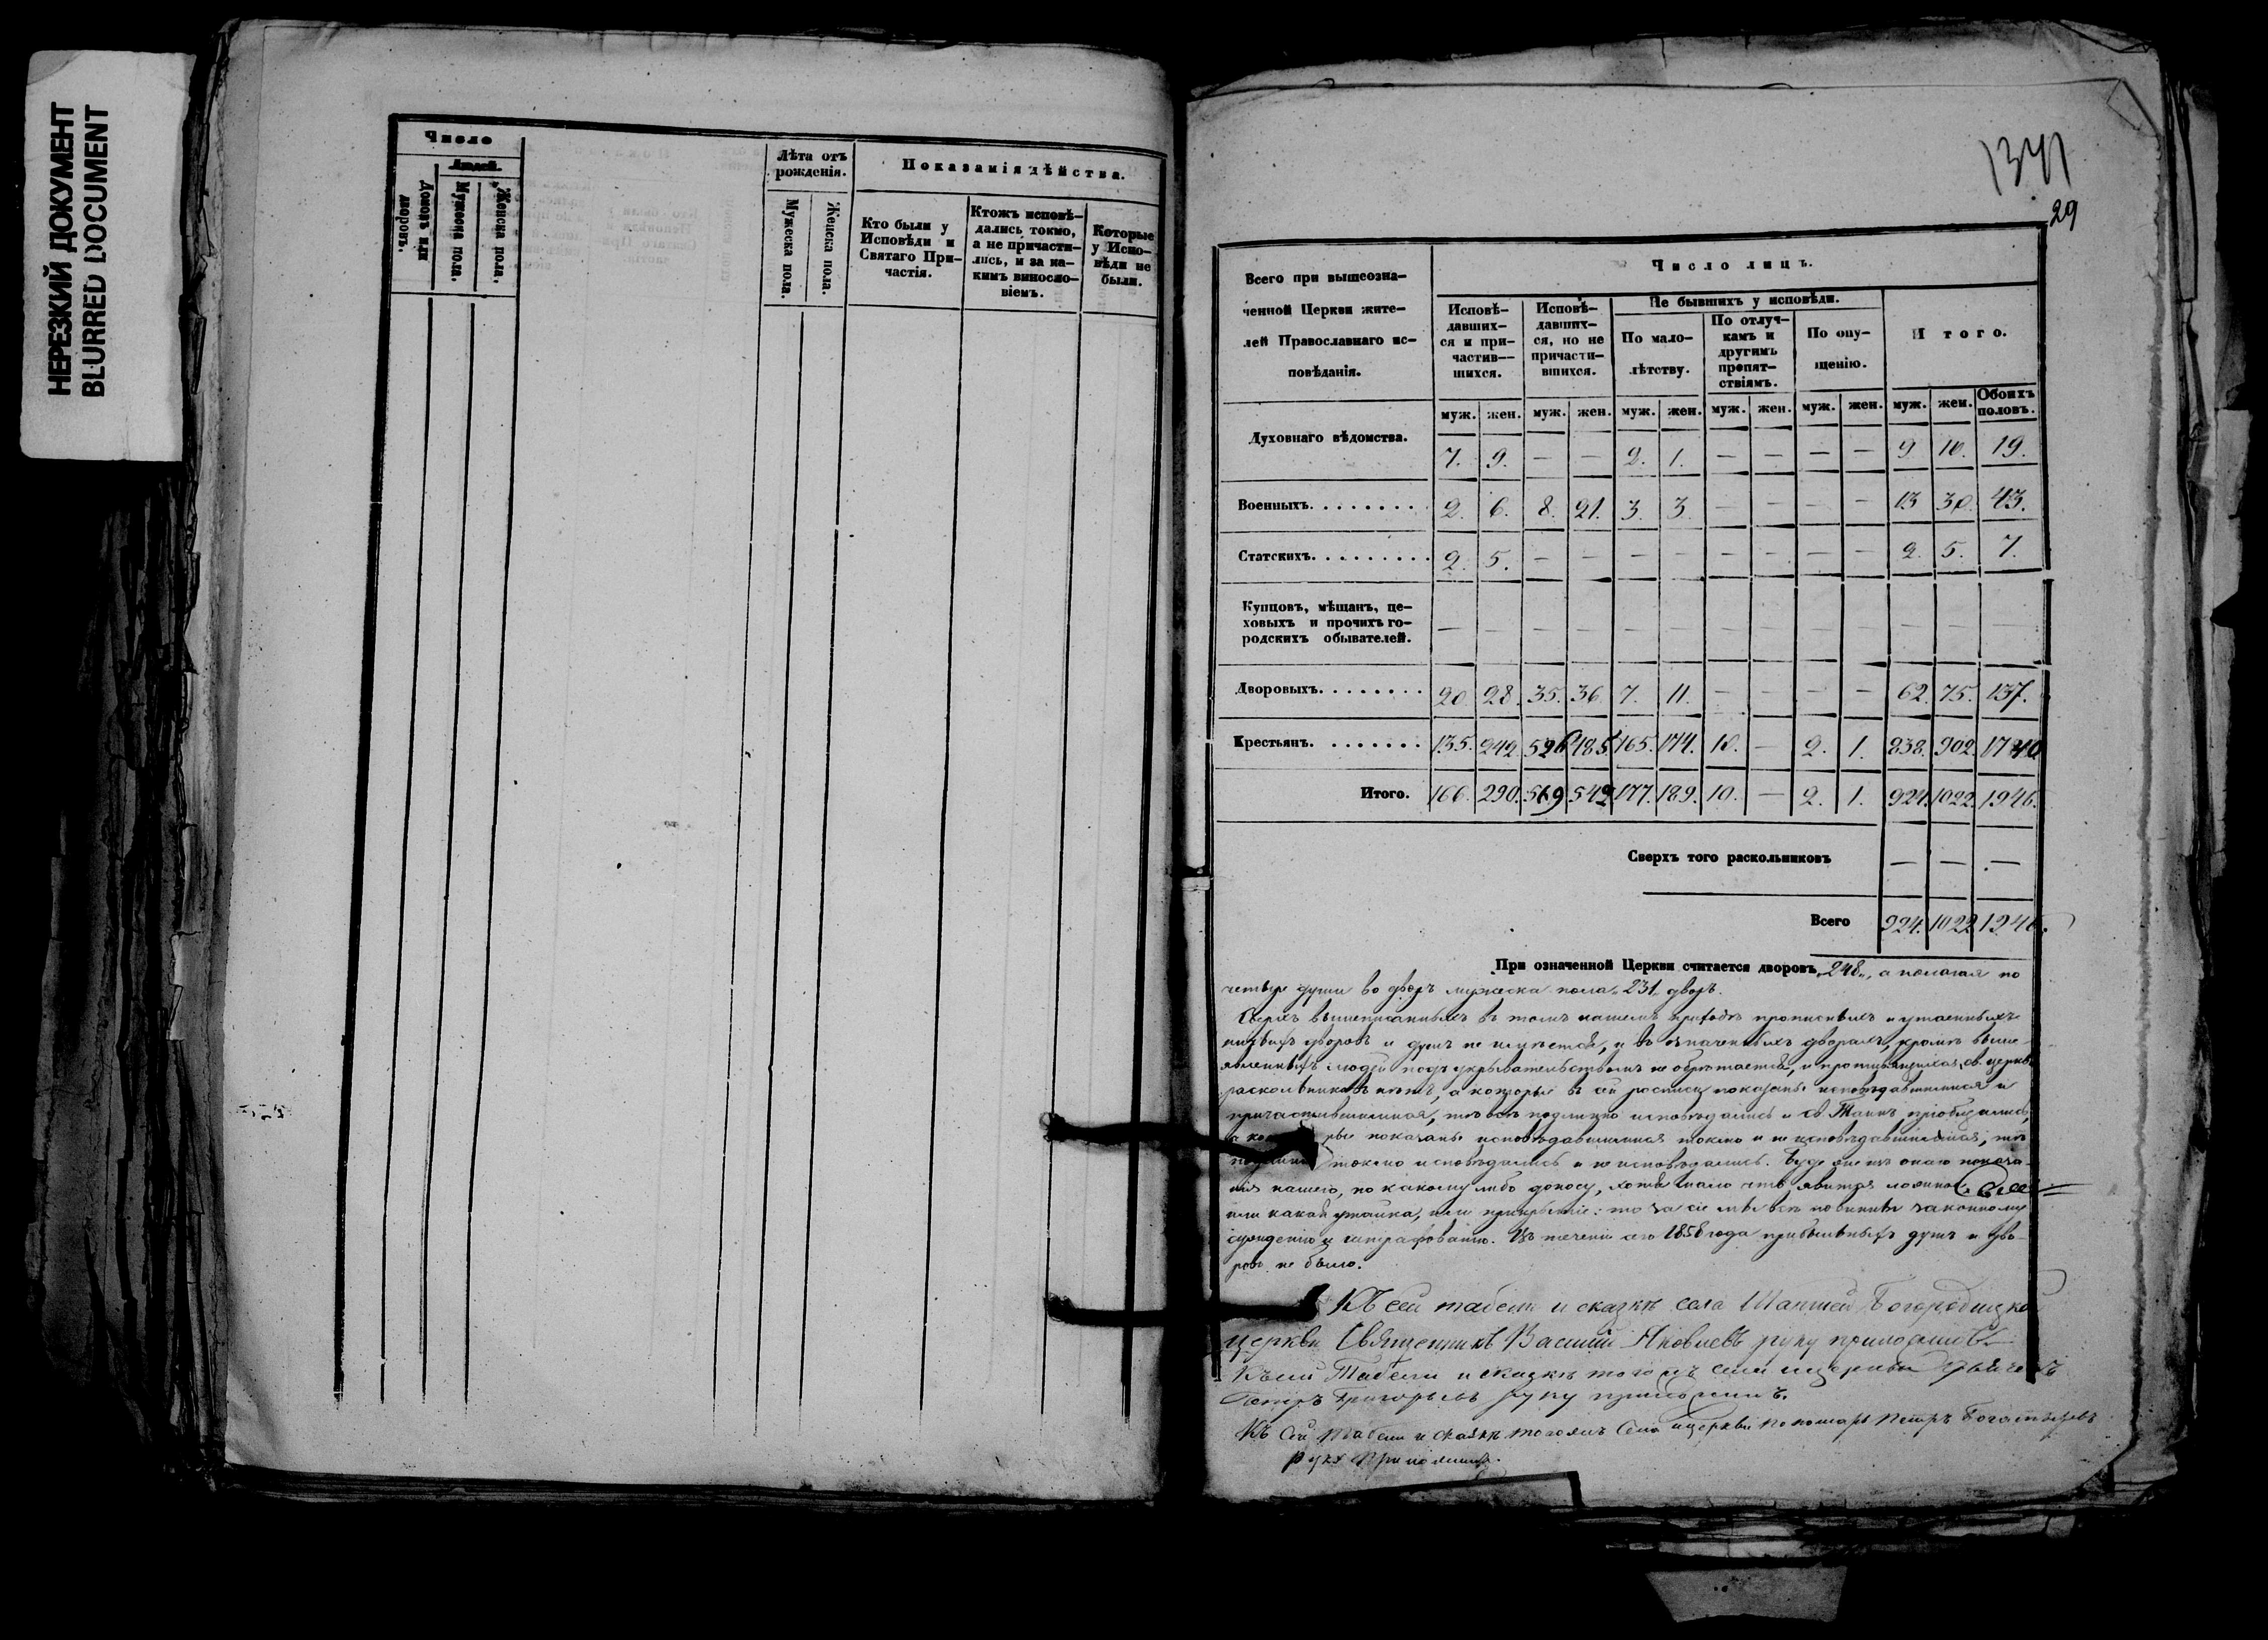 НЕРЕЗКИЙ ДОКУМЕНТ
BLURRED DOCUMENT
Число
Людей.
Домовъ или дворовъ.
Мужеска пола.
Женска пола.
Лѣта отъ рожденія.
Мужеска пола.
Женска пола.
Показанія дѣйства.
Кто были у Исповѣди и Святаго При-частія.
Ктожъ исповѣ-дались токмо, а не причасти-лись, и за ка-кимъ винословіемъ.
Которые у Испо-вѣди не были.
1341
29
Всего при вышеозна-
ченной Церкви жите-
лей Православнаго ис-
повѣданія.
Число лицъ.
Исповѣ-давших-ся и при-частив-шихся.
Исповѣ-давших-ся, но не причасти-вшихся.
Не бывшихъ у исповѣди.
По мало-лѣтству.
По отлуч-камъ и другимъ препят-ствіямъ.
По опу-щенію.
Итого.
муж. жен. муж. жен. муж. жен. муж. жен. муж. жен. муж. жен. Обоихъ половъ.
Духовнаго вѣдомства. 7. 9. — — 2. 1. — — — — 9 10. 19.
Военныхъ. 2. 6. 8. 21. 3. 3 — — — — 13 30. 43.
Статскихъ. 2. 5. — — — — — — — — 2. 5. 7.
Купцовъ, мѣщанъ, це-
ховыхъ и прочихъ го-
родскихъ обывателей. — — — — — — — — — — — — —
Дворовыхъ. 20. 28. 35. 36 7. 11. — — — — 62. 75. 137.
Крестьянъ. 135. 242. 526 485 165. 174. 10. — 2. 1. 838. 902. 1740
Итого. 166. 290. 569 542 177. 189. 10. — 2. 1. 924. 1022. 1946.
Сверхъ того раскольниковъ — — —
Всего 924. 1022 1946.
При означенной Церкви считается дворовъ „248„, а полагая по
четыре души во дворъ мужеска пола „231„ дворъ.
Сверхъ вышеписанныхъ въ томъ нашемъ приходѣ прописныхъ и утаенныхъ
дворовъ и душъ не имѣется, и въ означенныхъ дворахъ, кромѣ выше
явленныхъ людей подъ укрывательствомъ не обрѣтается, и противящихся св. церкви
раскольниковъ нѣтъ, а которые въ сей росписи показаны исповѣдавшимися и
причастившимися, тѣ всѣ подлинно исповѣдались и св Таинъ пріобщались,
а которые показаны исповѣдавшимися токмо и не исповѣдавшимися, тѣ
токмо исповѣдались и не исповѣдались. Буде же изъ онаго показа
нія нашего, по какому либо доносу, хотя мало что явится ложно
или какая утайка, или прикрытіе: то за сіе мы всѣ повинны законному
сужденію и штрафованію. Въ теченіи сего 1858 года прибыльныхъ душъ и дво
ровъ не было.
Къ сей табели и сказкѣ села Богородицкой
церкви Священникъ Василій Яковлевъ руку приложилъ.
Къ сей Табели и сказкѣ тогожъ села церкви
Петръ Григорьевъ руку приложилъ.
Къ Сей табели и сказкѣ тогожъ Села церкви пономарь Петръ
руку приложилъ.